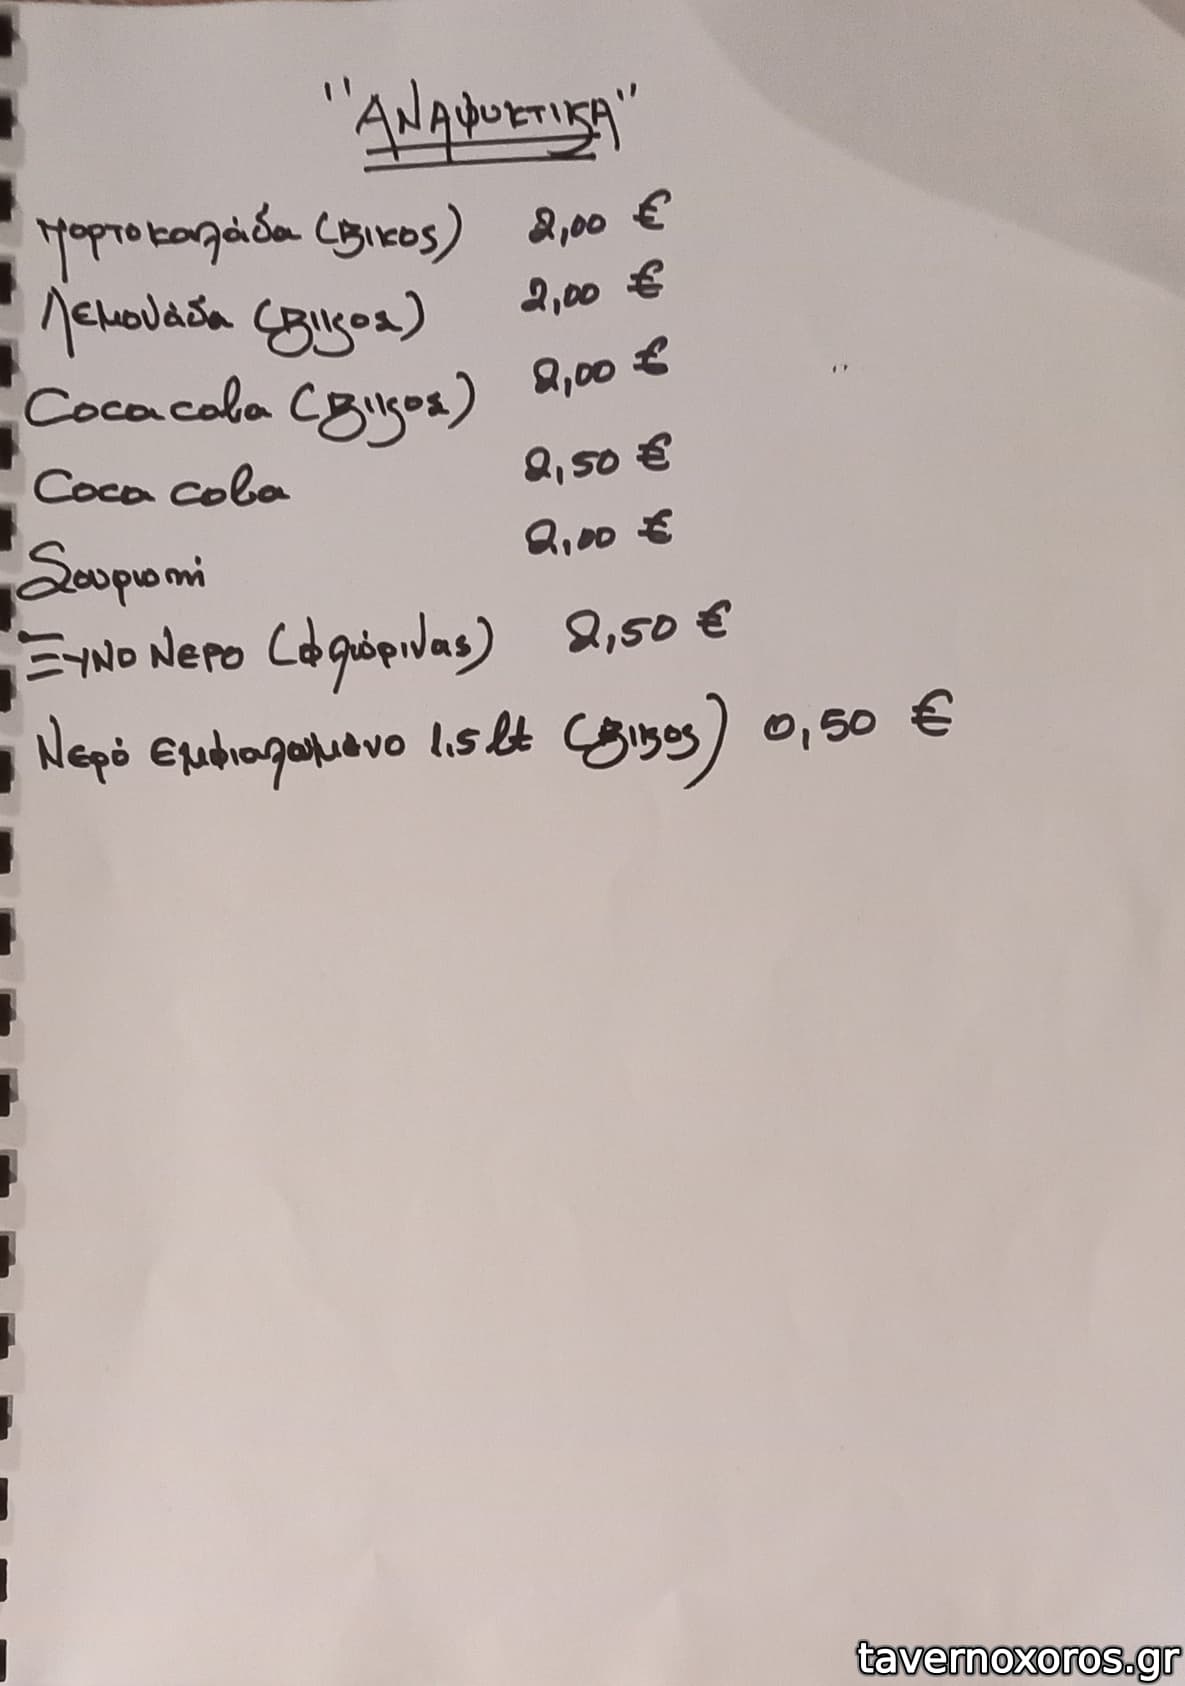 "ΑΝΑΨΥΚΤΙΚΑ"
Πορτοκαλάδα (Βικος) 2,00 €
Λεμονάδα (Βικος) 2,00 €
Coca cola (Βικος) 2,00 €
Coca cola 2,50 €
Σουρωτή 2,00 €
ΞΥΝΟ ΝΕΡΟ (Φλώρινας) 2,50 €
Νερό εμφιαλωμένο 1.5 lt (Βικος) 0,50 €
tavernoxoros.gr